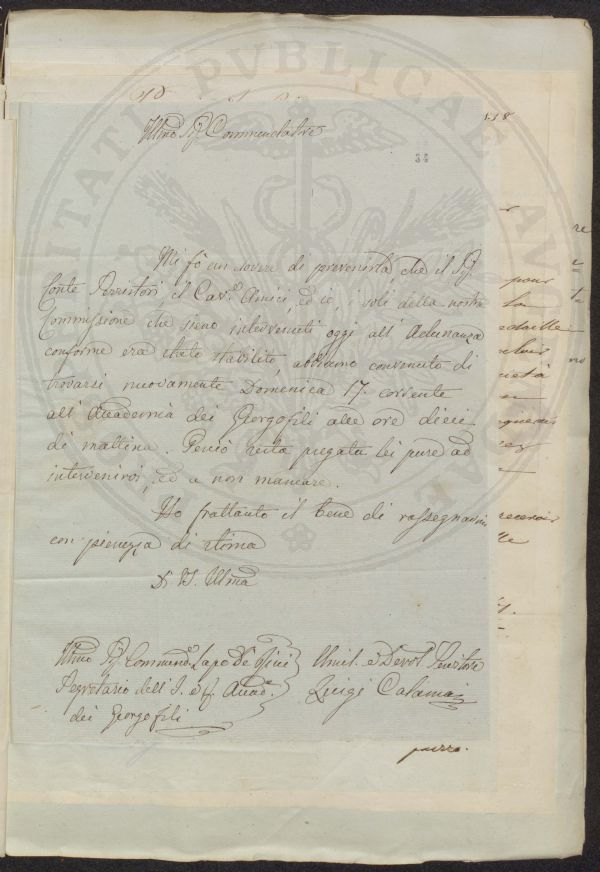 Illmo Sig. Commendatore
Mi fò un dovere di prevenirla che il Sig.
Conte Serristori il Cav.e Amici, ed io, i soli della nostra
Commissione che sieno intervenuti oggi all' Adunanza
conforme era stato stabilito, abbiamo convenuto di
trovarsi nuovamente Domenica 17. corrente
all' Accademia dei Georgofili alle ore dieci
di mattina. Perciò resta pregata lei pure ad
intervenirvi, ed a non mancare.
Ho frattanto il bene di rassegnarmi
con pienezza di stima
Di VS. Illma
Illmo Sig. Commend.e Lapo De' Ricci
Segretario dell' I. e R. Accad.
dei Georgofili
Umil. e Devot. Servitore
Luigi Calamai